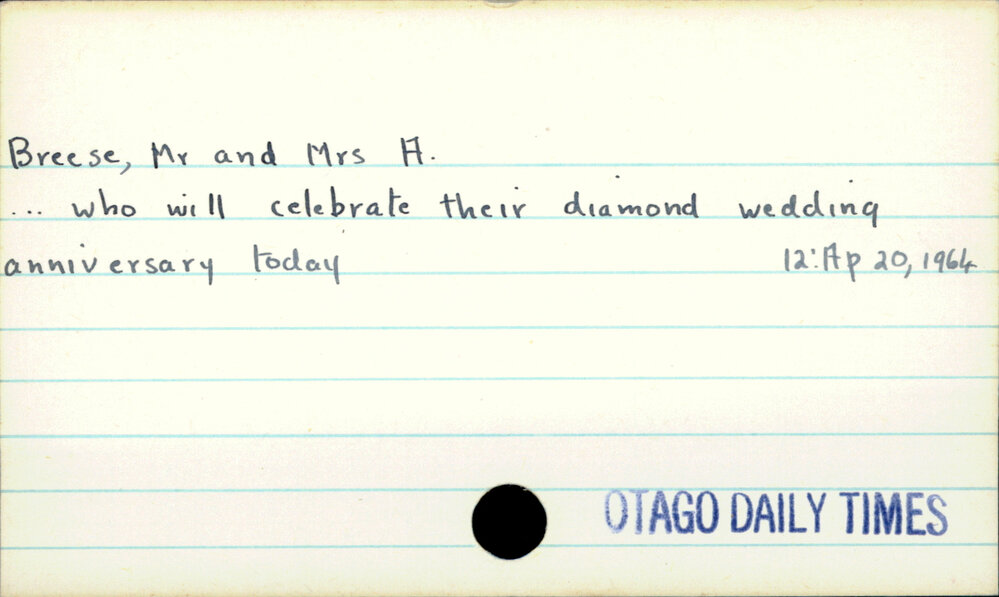 Breese, Mr and Mrs A.
... who will celebrate their diamond wedding
anniversary today 12:Ap 20, 1964
OTAGO DAILY TIMES